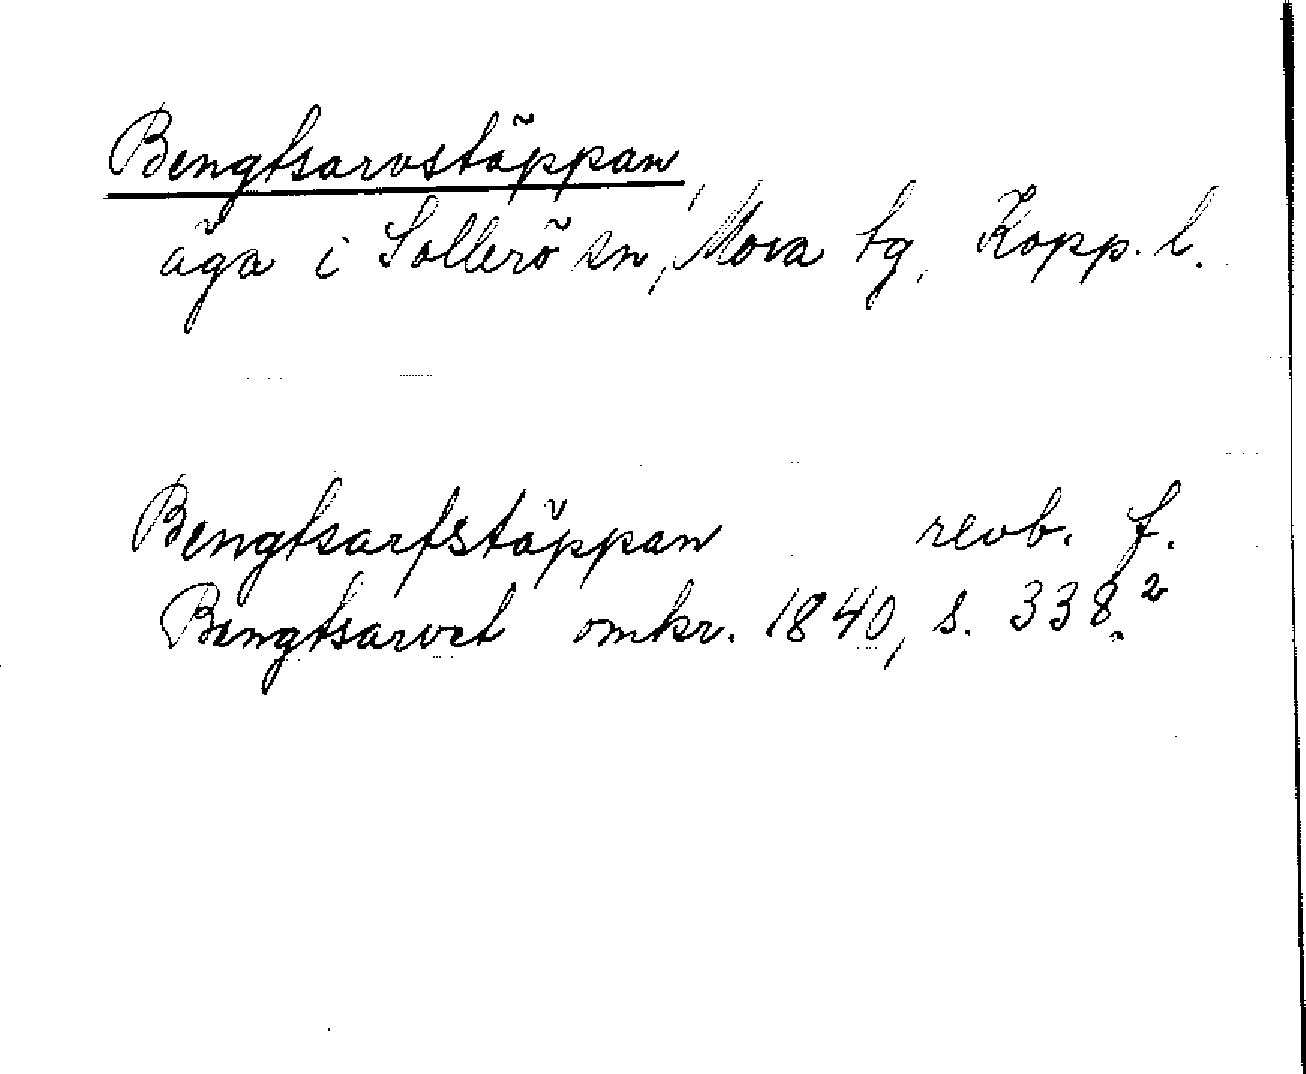 Bengtsarvstäppan,
äga i Sollerö sn, Mora tg, Kopp. l.
Bengtsarfstäppan revb. f.
Bengtsarvet omkr. 1840, s. 338²